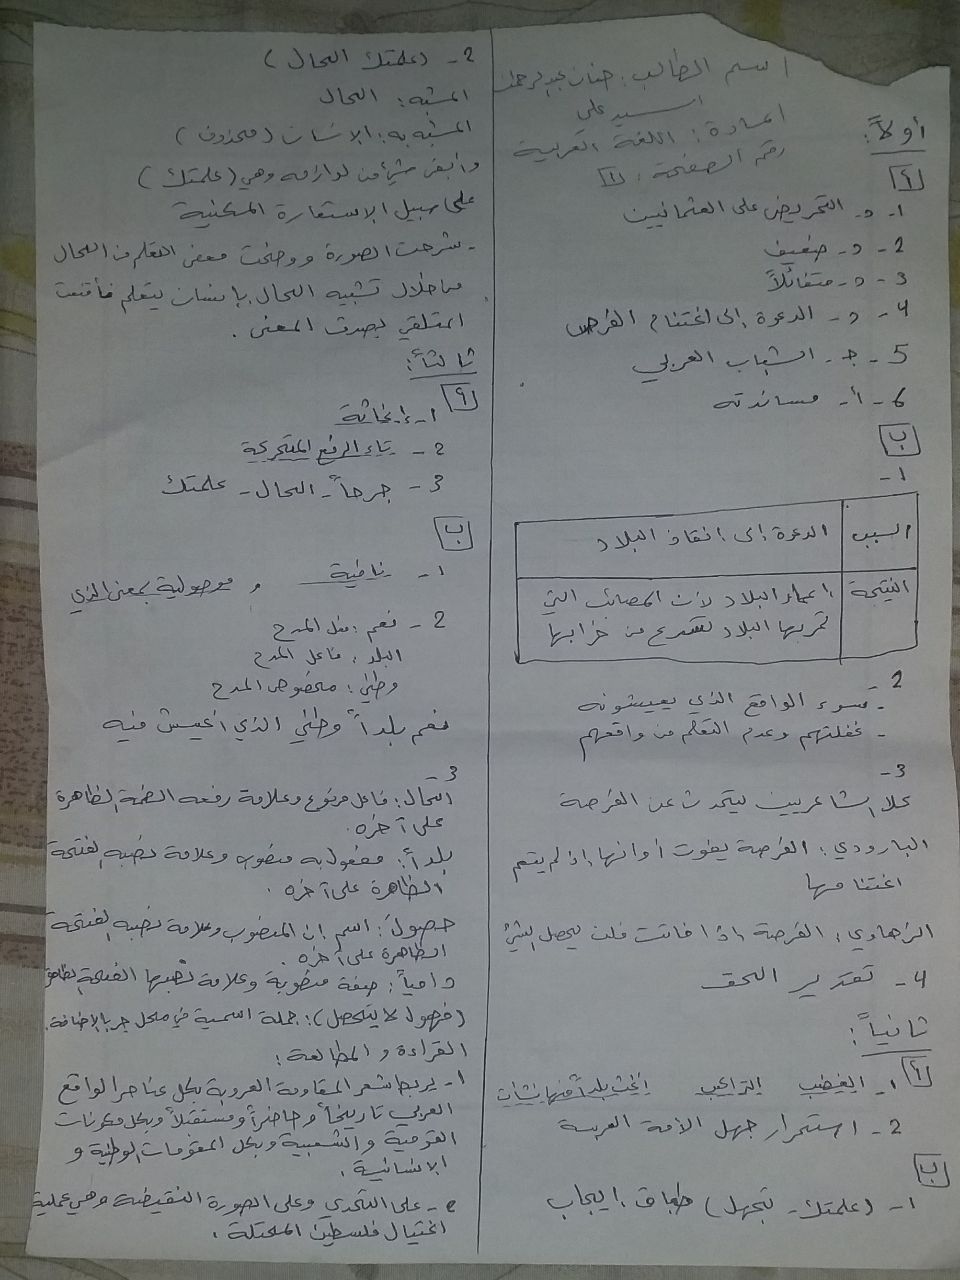 اسم الطالب: حنان عبدالرحمن
اسيد علي
المادة: اللغة العربية
رقم الصفحة: 1
أولاً:
أ
1- د- التحريض على العثمانيين
2- د- ضعيف
3- د- متفائلاً
4- د- الدعوة إلى اغتنام الفرص
5- ج- الشباب العربي
6- أ- مساندته
ب
1-
السبب الدعوة إلى إنقاذ البلاد
النتيجة إعمار البلاد لأن المصائب التي
تمر بها البلاد تسرع من خرابها
2-
- سوء الواقع الذي يعيشونه
- غفلتهم وعدم التعلم من واقعهم
3-
كلا الشاعريين ليتحدث عن الفرصة
البارودي: الفرصة يفوت أوانها إذ لم يتم
اغتنامها
الزهاوي: الفرصة إذا فاتت فلن يحصل الشيء
4- تقدير الحق
ثانياً:
أ
1- الغضب التراكيب أغث بلداً منها نشأت
2- استمرار جهل الأمة العربية
ب
1- (علمتك - تجهل) طباق إيجاب
2- (علمتك الحال)
المشبه: الحال
المشبه به: الإنسان (محذوف)
وأبقى شيء من لوازمه وهي (علمتك)
على سبيل الاستعارة المكنية
- شرحت الصورة ووضحت معنى التعلم من الحال
من خلال تشبيه الحال بإنسان يتعلم فأقنعت
المتلقي بصدق المعنى.
ثالثاً:
أ
1- إغاثة
2- تاء الرفع المتحركة
3- جرحاً - الحال - علمتك
ب
1- نافية و موصولية بمعنى الذي
2- نعم: فعل المدح
البلد: فاعل المدح
وطني: مخصوص المدح
نعم بلداً وطني الذي أعيش فيه
3-
الحال: فاعل مرفوع وعلامة رفعه الضمة الظاهرة
على آخره.
بلداً: مفعول به منصوب وعلامة نصبه الفتحة
الظاهرة على آخره.
حصول: اسم إن المنصوب وعلامة نصبه الفتحة
الظاهرة على آخره.
دامياً: صفة منصوبة وعلامة نصبها الفتحة الظاهرة
(فهول لا يتحصل): جملة اسمية في محل جر بالإضافة.
القراءة و المطالعة:
1- يربط شعر المقاومة العروبة بكل عناصر الواقع
العربي تاريخاً وحاضراً ومستقبلاً وبكل مكونات
القومية والشعبية وبكل المقومات الوطنية و
الإنسانية.
2- على التحدي وعلى الصورة النقيضة وهي عملية
اغتيال فلسطين المحتلة.